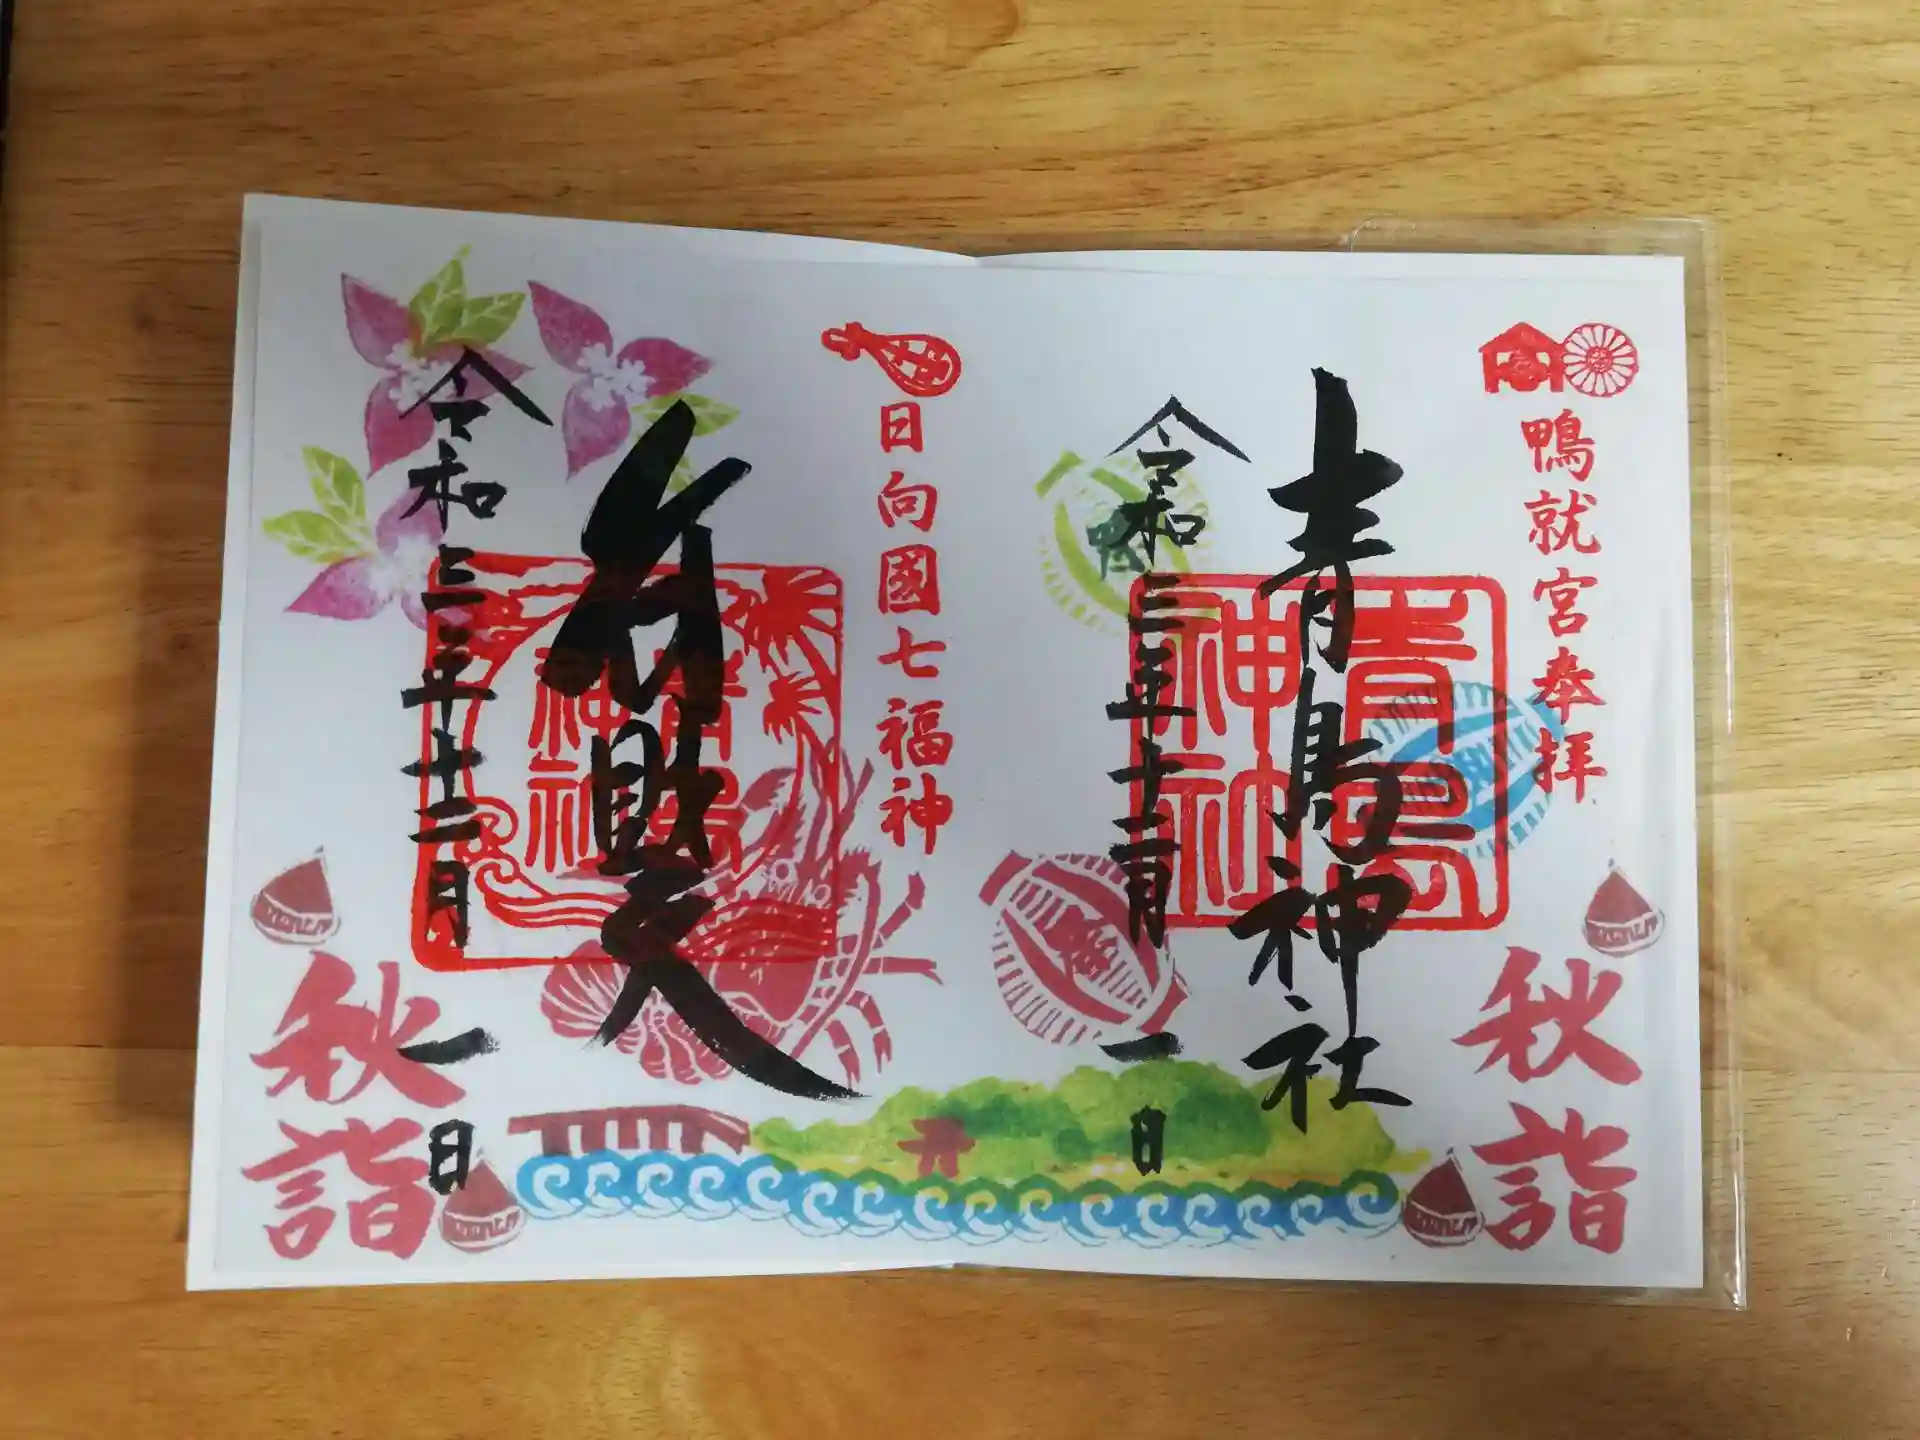 鴨就宮奉拝
秋詣
青島神社
青島
神社
令和三年十二月一日
日向國七福神
弁財天
青島
神社
令和三年十二月一日
秋詣